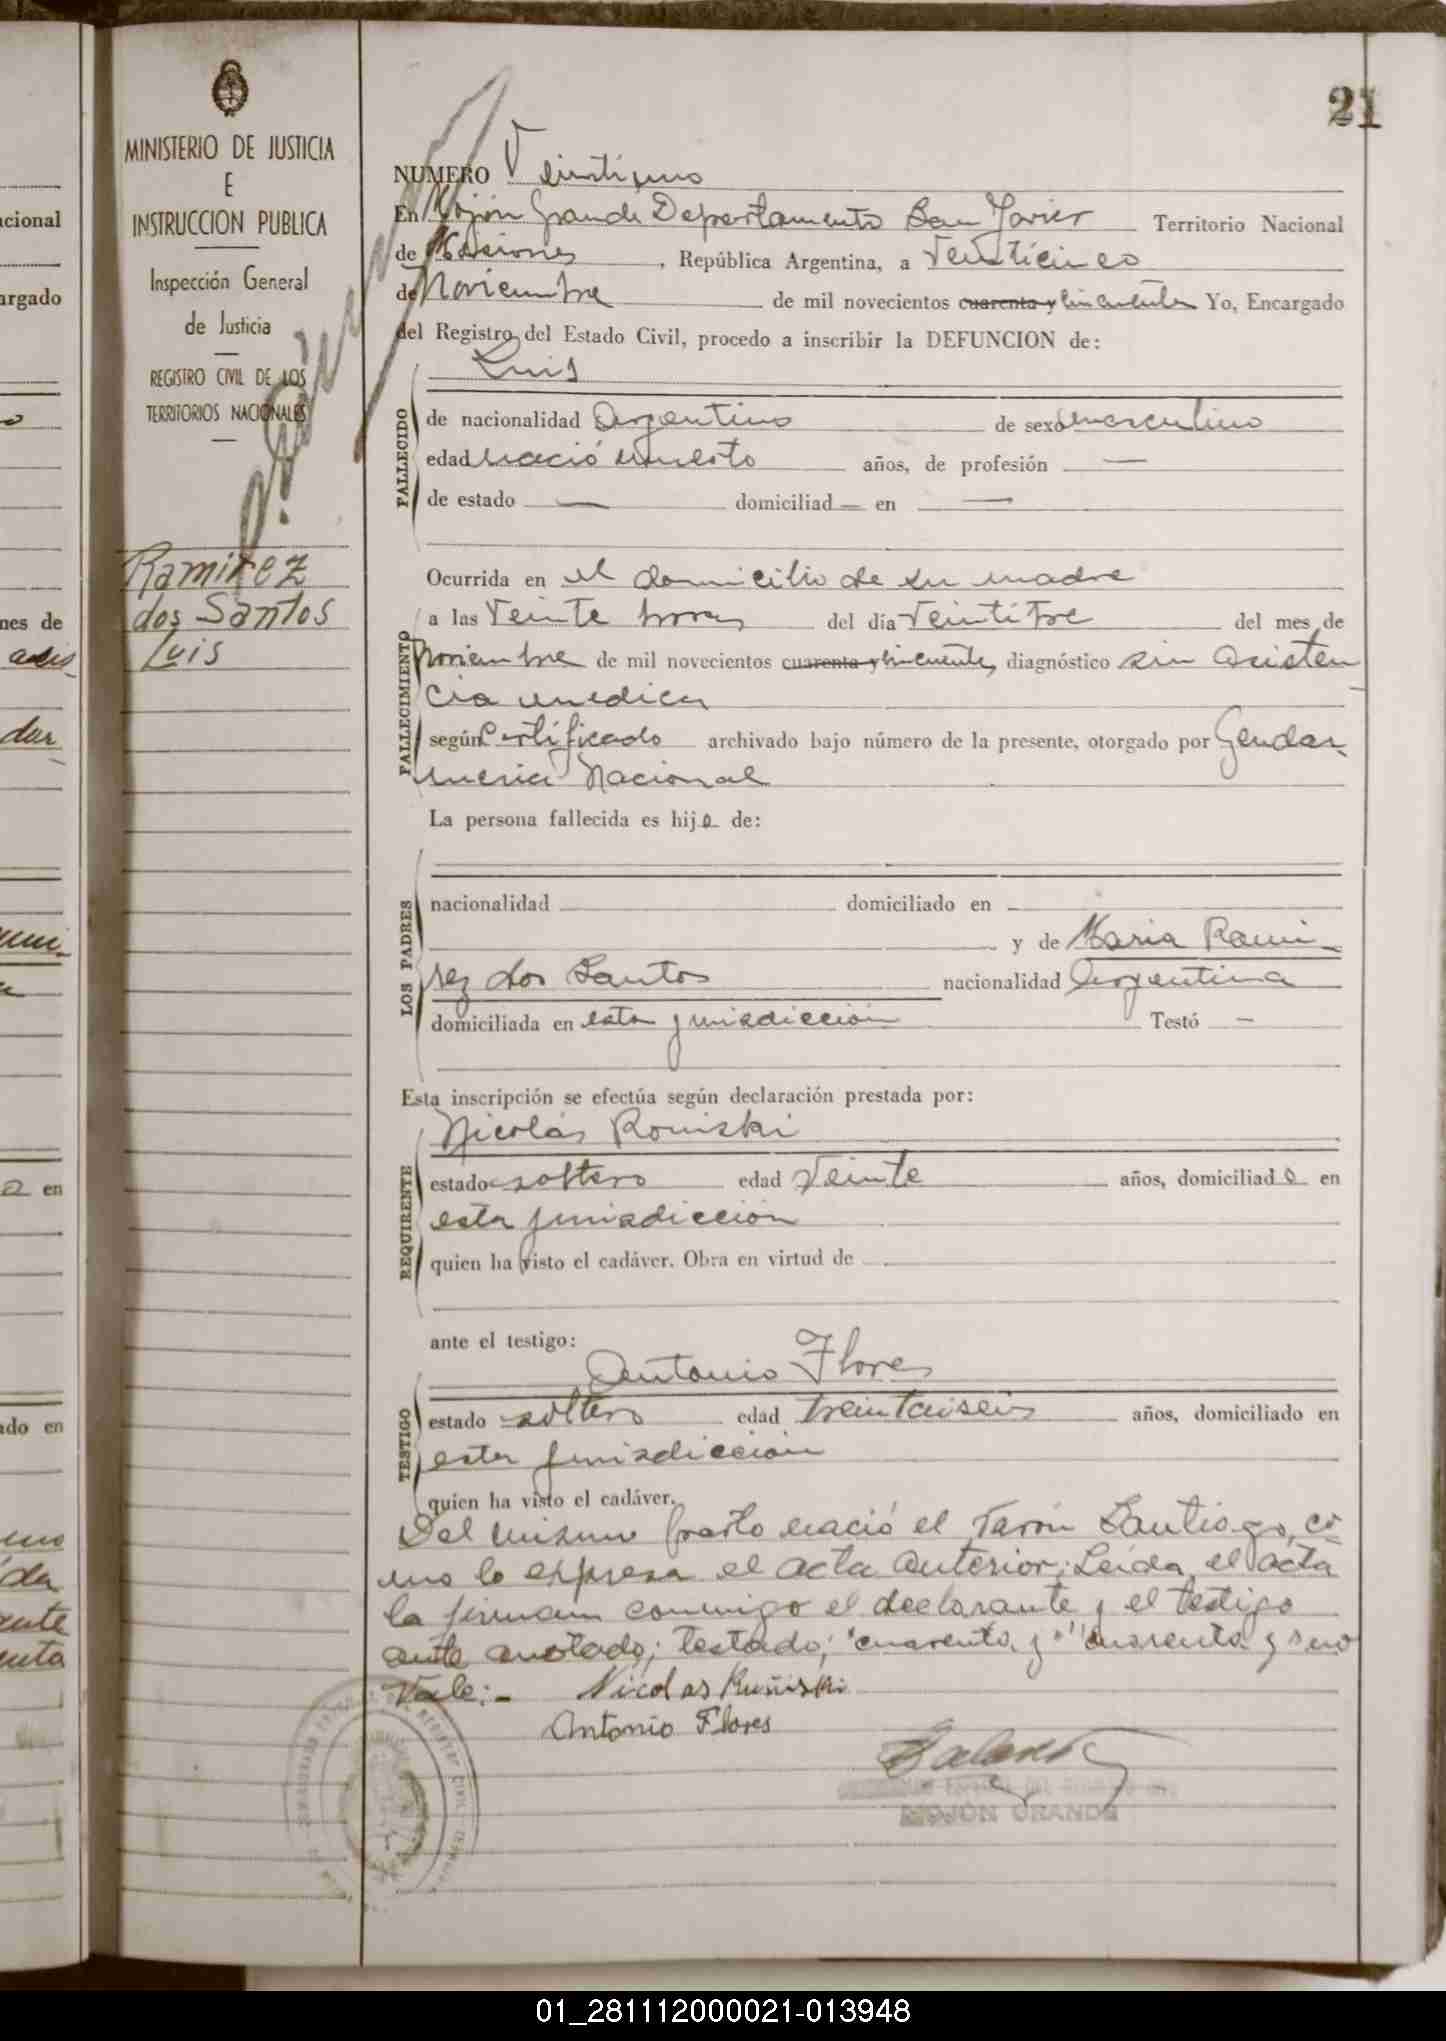 21
MINISTERIO DE JUSTICIA
E
INSTRUCCION PUBLICA
Inspección General
de Justicia
REGISTRO CIVIL DE LOS
TERRITORIOS NACIONALES
Ramirez
dos Santos
Luis
NUMERO Veintiuno
En Mojón Grande Departamento San Javier Territorio Nacional
de Misiones, República Argentina, a Veinticinco
de Noviembre de mil novecientos cuarenta y cincuenta Yo, Encargado
del Registro del Estado Civil, procedo a inscribir la DEFUNCION de:
Luis
FALLECIDO
de nacionalidad Argentino de sexo masculino
edad nació muerto años, de profesión —
de estado — domiciliad — en —
FALLECIMIENTO
Ocurrida en el domicilio de su madre
a las Veinte horas del día Veintitre del mes de
Noviembre de mil novecientos cuarenta y cincuenta, diagnóstico sin asisten
cia medica
según Certificado archivado bajo número de la presente, otorgado por Gendar
meria Nacional
La persona fallecida es hijo de:
LOS PADRES
nacionalidad domiciliado en
y de Maria Rami-
rez dos Santos nacionalidad Argentina
domiciliada en esta jurisdicción Testó —
Esta inscripción se efectúa según declaración prestada por:
Nicolás Roniski
REQUIRENTE
estado soltero edad Veinte años, domiciliado en
esta jurisdicción
quien ha visto el cadáver. Obra en virtud de
ante el testigo:
Antonio Flores
TESTIGO
estado soltero edad treintaiseis años, domiciliado en
esta jurisdicción
quien ha visto el cadáver.
Del mismo parto nació el Varón Santiago, co
mo lo expresa el acta anterior; Leida el acta
la firman conmigo el declarante y el testigo
ante anotado; testado; "cuarenta y" "cuarenta y" no
Vale:-
Nicolas Ruñiski
Antonio Flores
MOJÓN GRANDE
cional
argado
nes de
dar
en
ado en
01_281112000021-013948